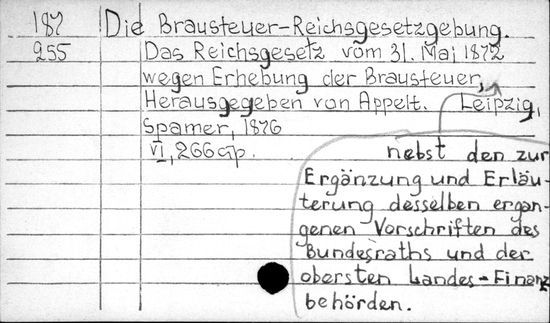 187 Die Brausteuer-Reichsgesetzgebung.
955 Das Reichsgesetz vom 31. Mai 1872
wegen Erhebung der Brausteuer,
Herausgegeben von Appelt. Leipzig,
Spamer, 1876
VI, 266 p.
nebst den zur
Ergänzung und Erläu-
terung desselben ergan-
genen Vorschriften des
Bundesraths und der
obersten Landes-Finanz
behörden.